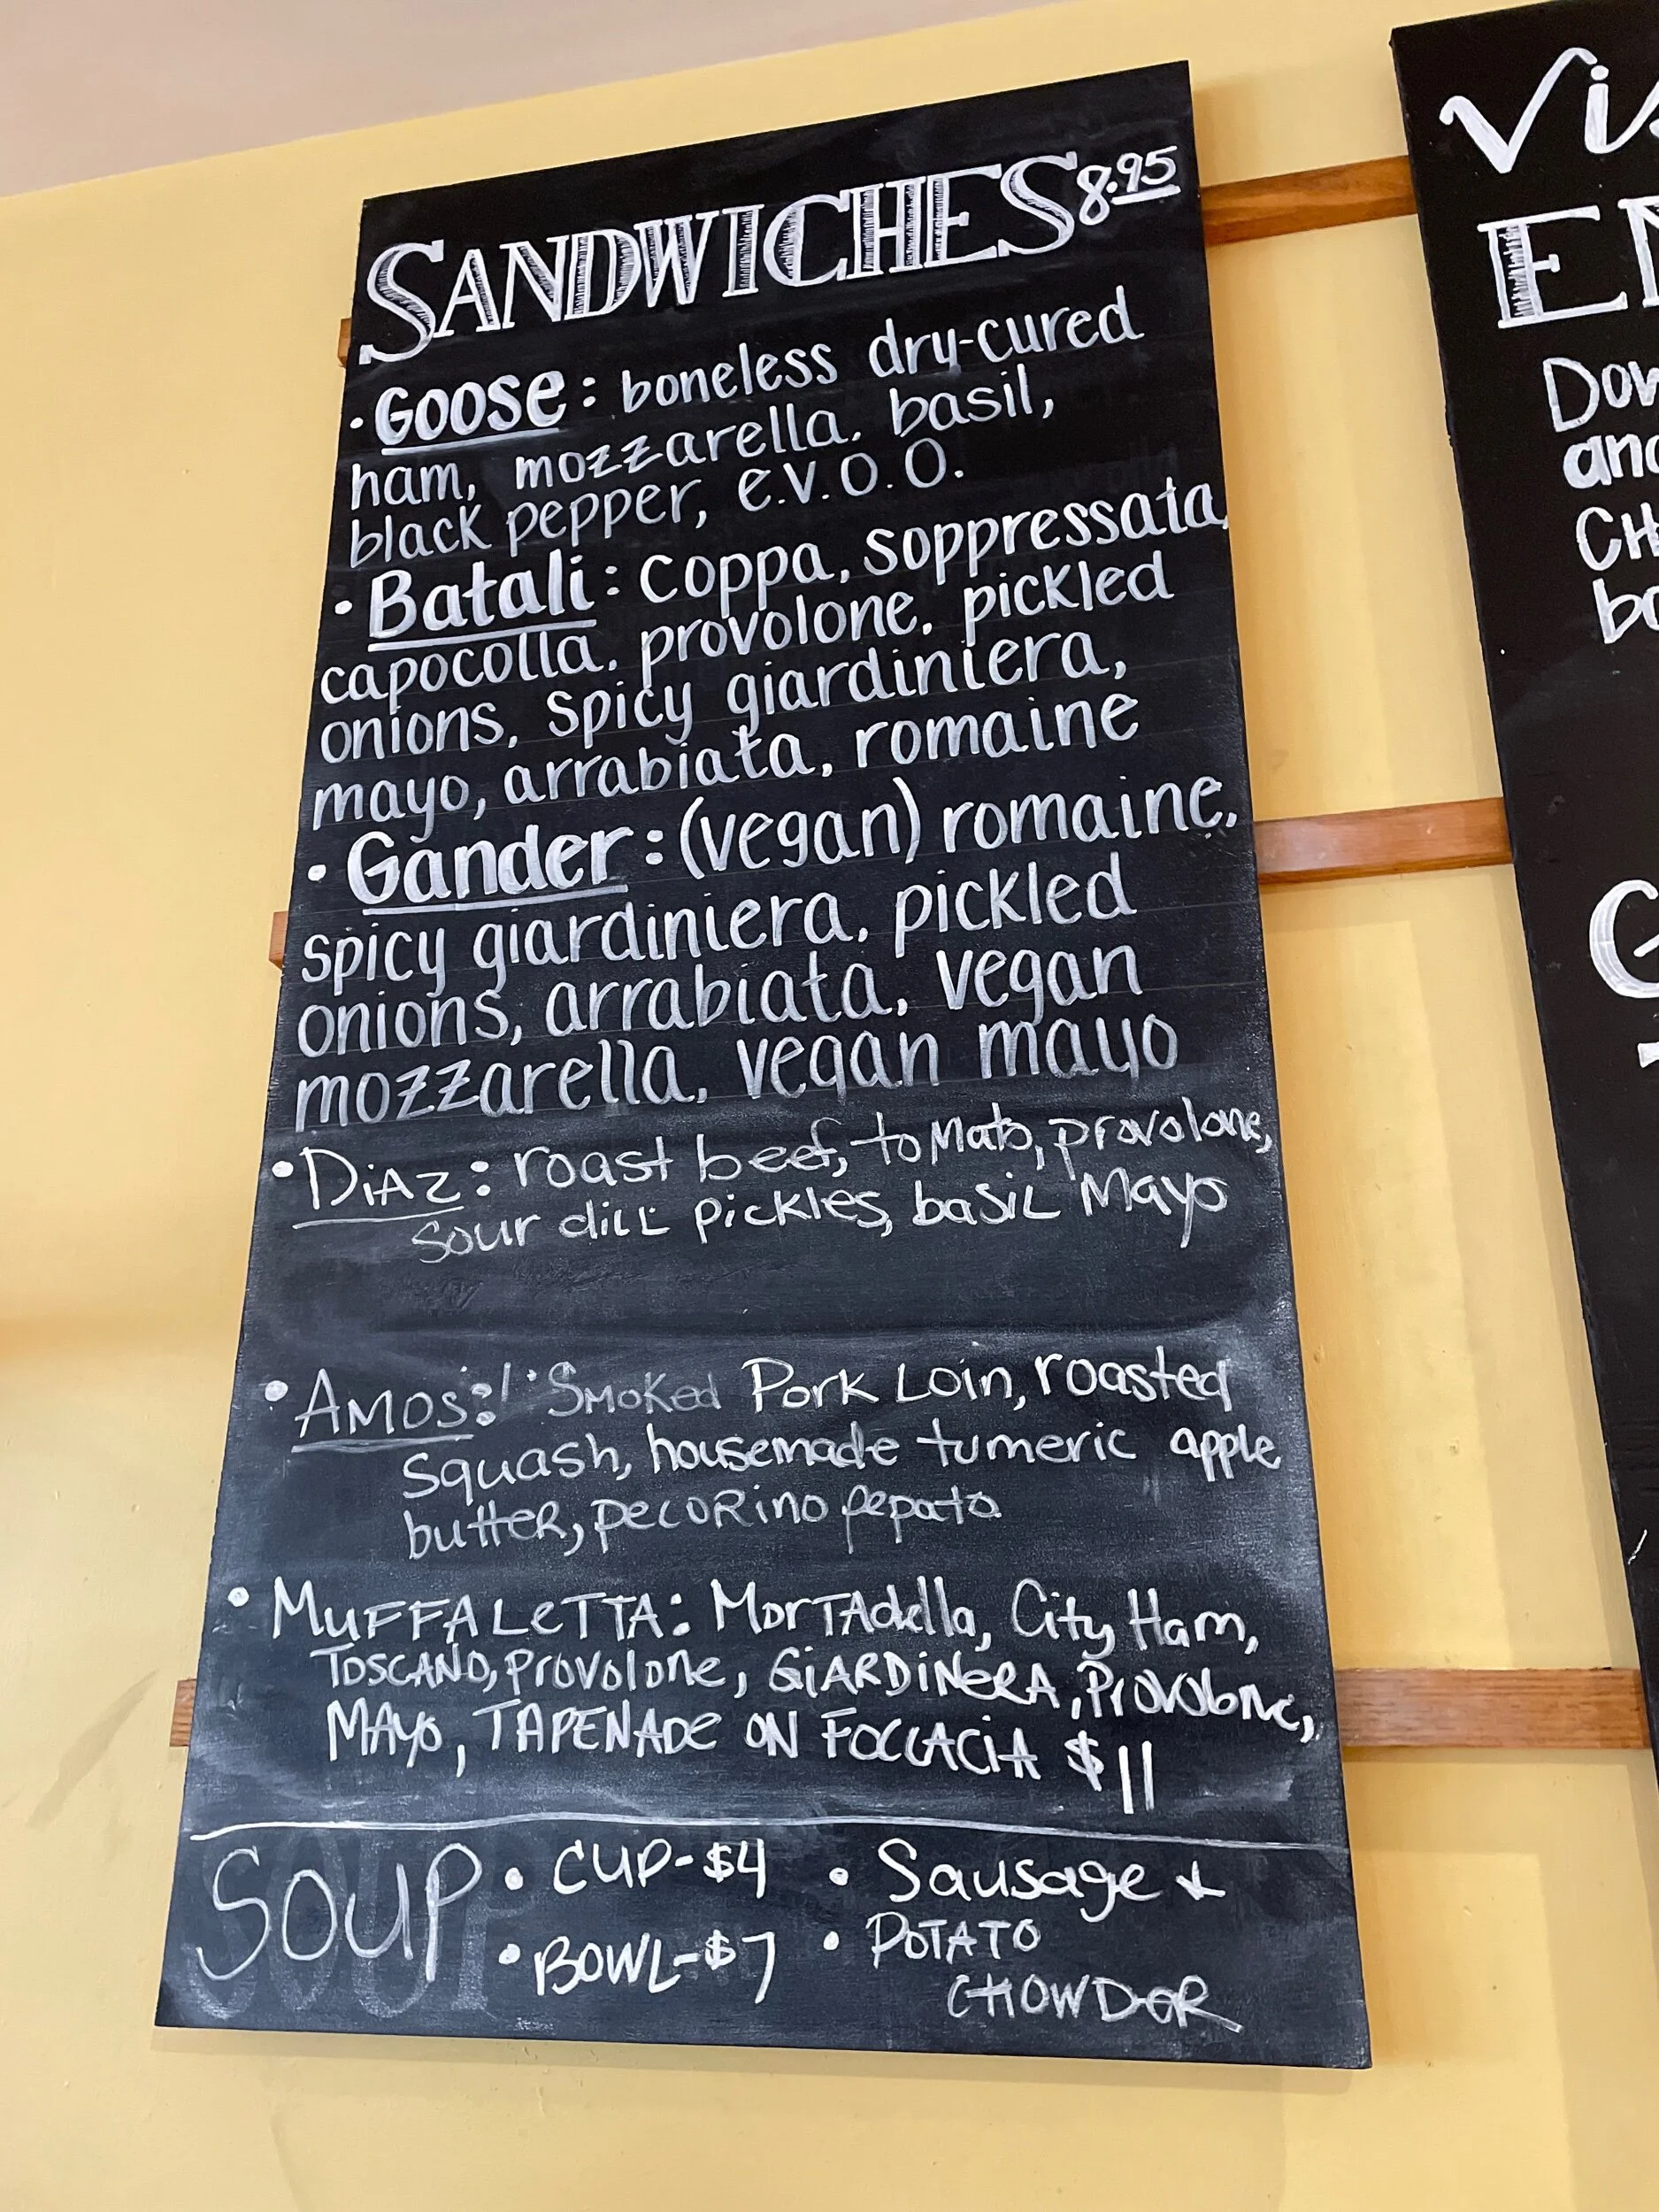 SANDWICHES 8.95
• Goose: boneless dry-cured
ham, mozzarella, basil,
black pepper, e.v.o.o.
• Batali: coppa, soppressata,
capocolla, provolone, pickled
onions, spicy giardiniera,
mayo, arrabiata, romaine
• Gander: (vegan) romaine,
spicy giardiniera, pickled
onions, arrabiata, vegan
mozzarella, vegan mayo
• DiAz: roast beef, toMato, provolone,
Sour diLL pickles, basiL Mayo
• AMOS: SMoKed Pork Loin, roasted
Squash, housemade tumeric apple
butteR, pecoRino pepato
• MUFFALeTTA: MorTAdella, City Ham,
TOSCANO, provolone, GiARDiNeRA, Provolone,
MAyo, TAPENADe ON FOCCACiA $11
SOUP • CUP-$4 • Sausage &
• BOWL-$7 • POTATO
CHOWDeR
Vis
E
Dow
and
CH
bo
G